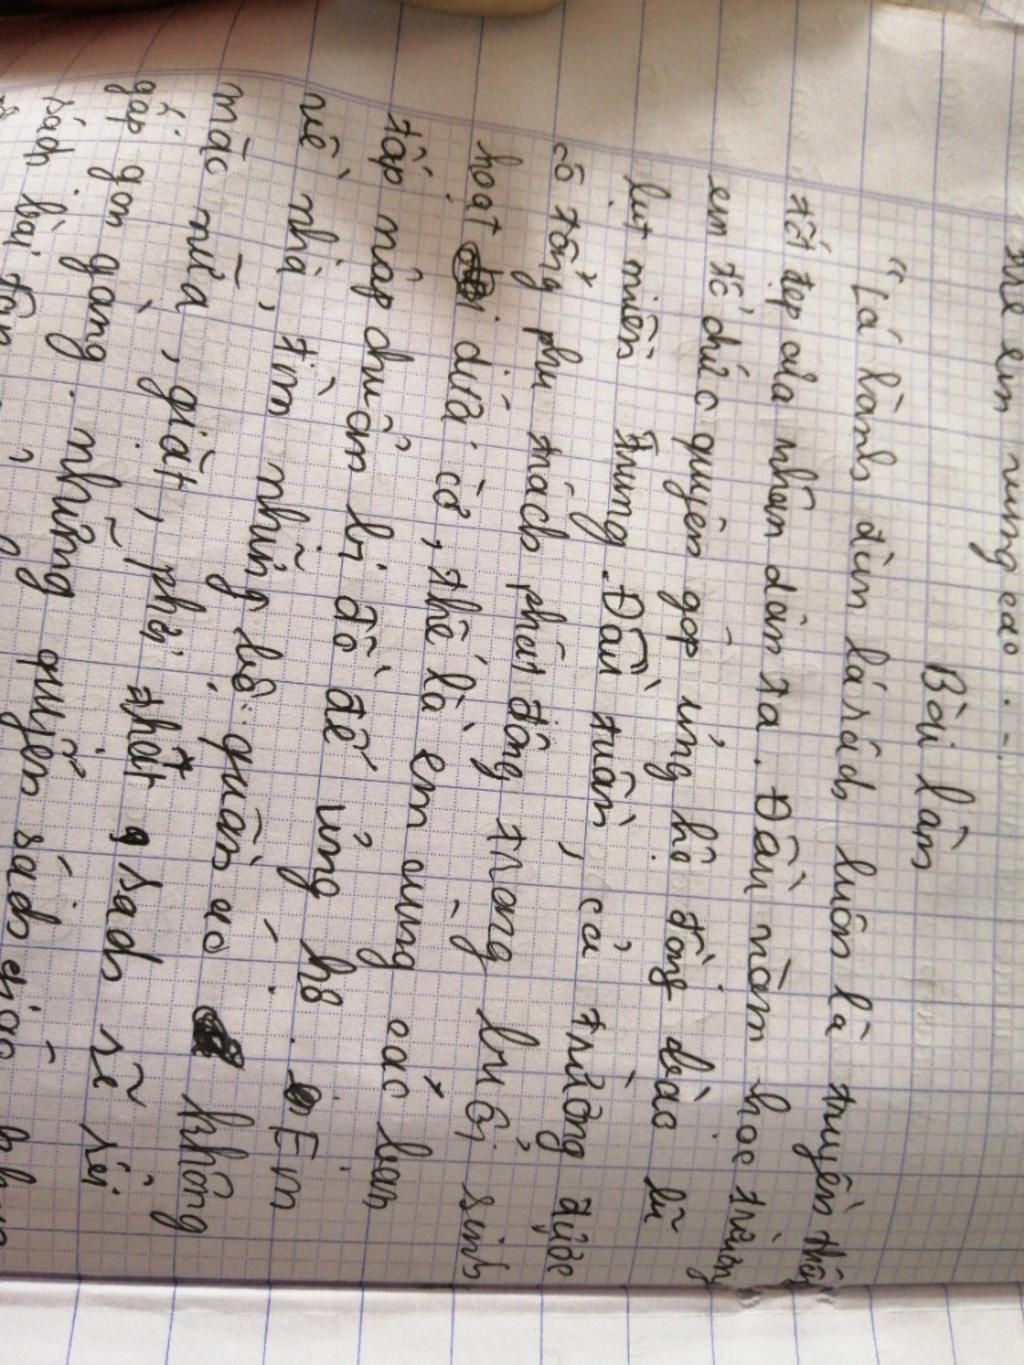 trẻ em vùng cao...
Bài làm
"Lá lành đùm lá rách luôn là truyền thống
tốt đẹp của nhân dân ta. Đầu năm học trường
em tổ chức quyên góp ủng hộ đồng bào lũ
lụt miền Trung. Đầu tuần, cả trường được
cô tổng phụ trách phát động trong buổi sinh
hoạt dưới cờ, thế là em cùng các bạn
tấp nập chuẩn bị đồ để ủng hộ. Em
về nhà, tìm những bộ quần áo không
mặc nữa, giặt, phơi thật sạch sẽ rồi
gấp gọn gàng. Những quyển sách giáo